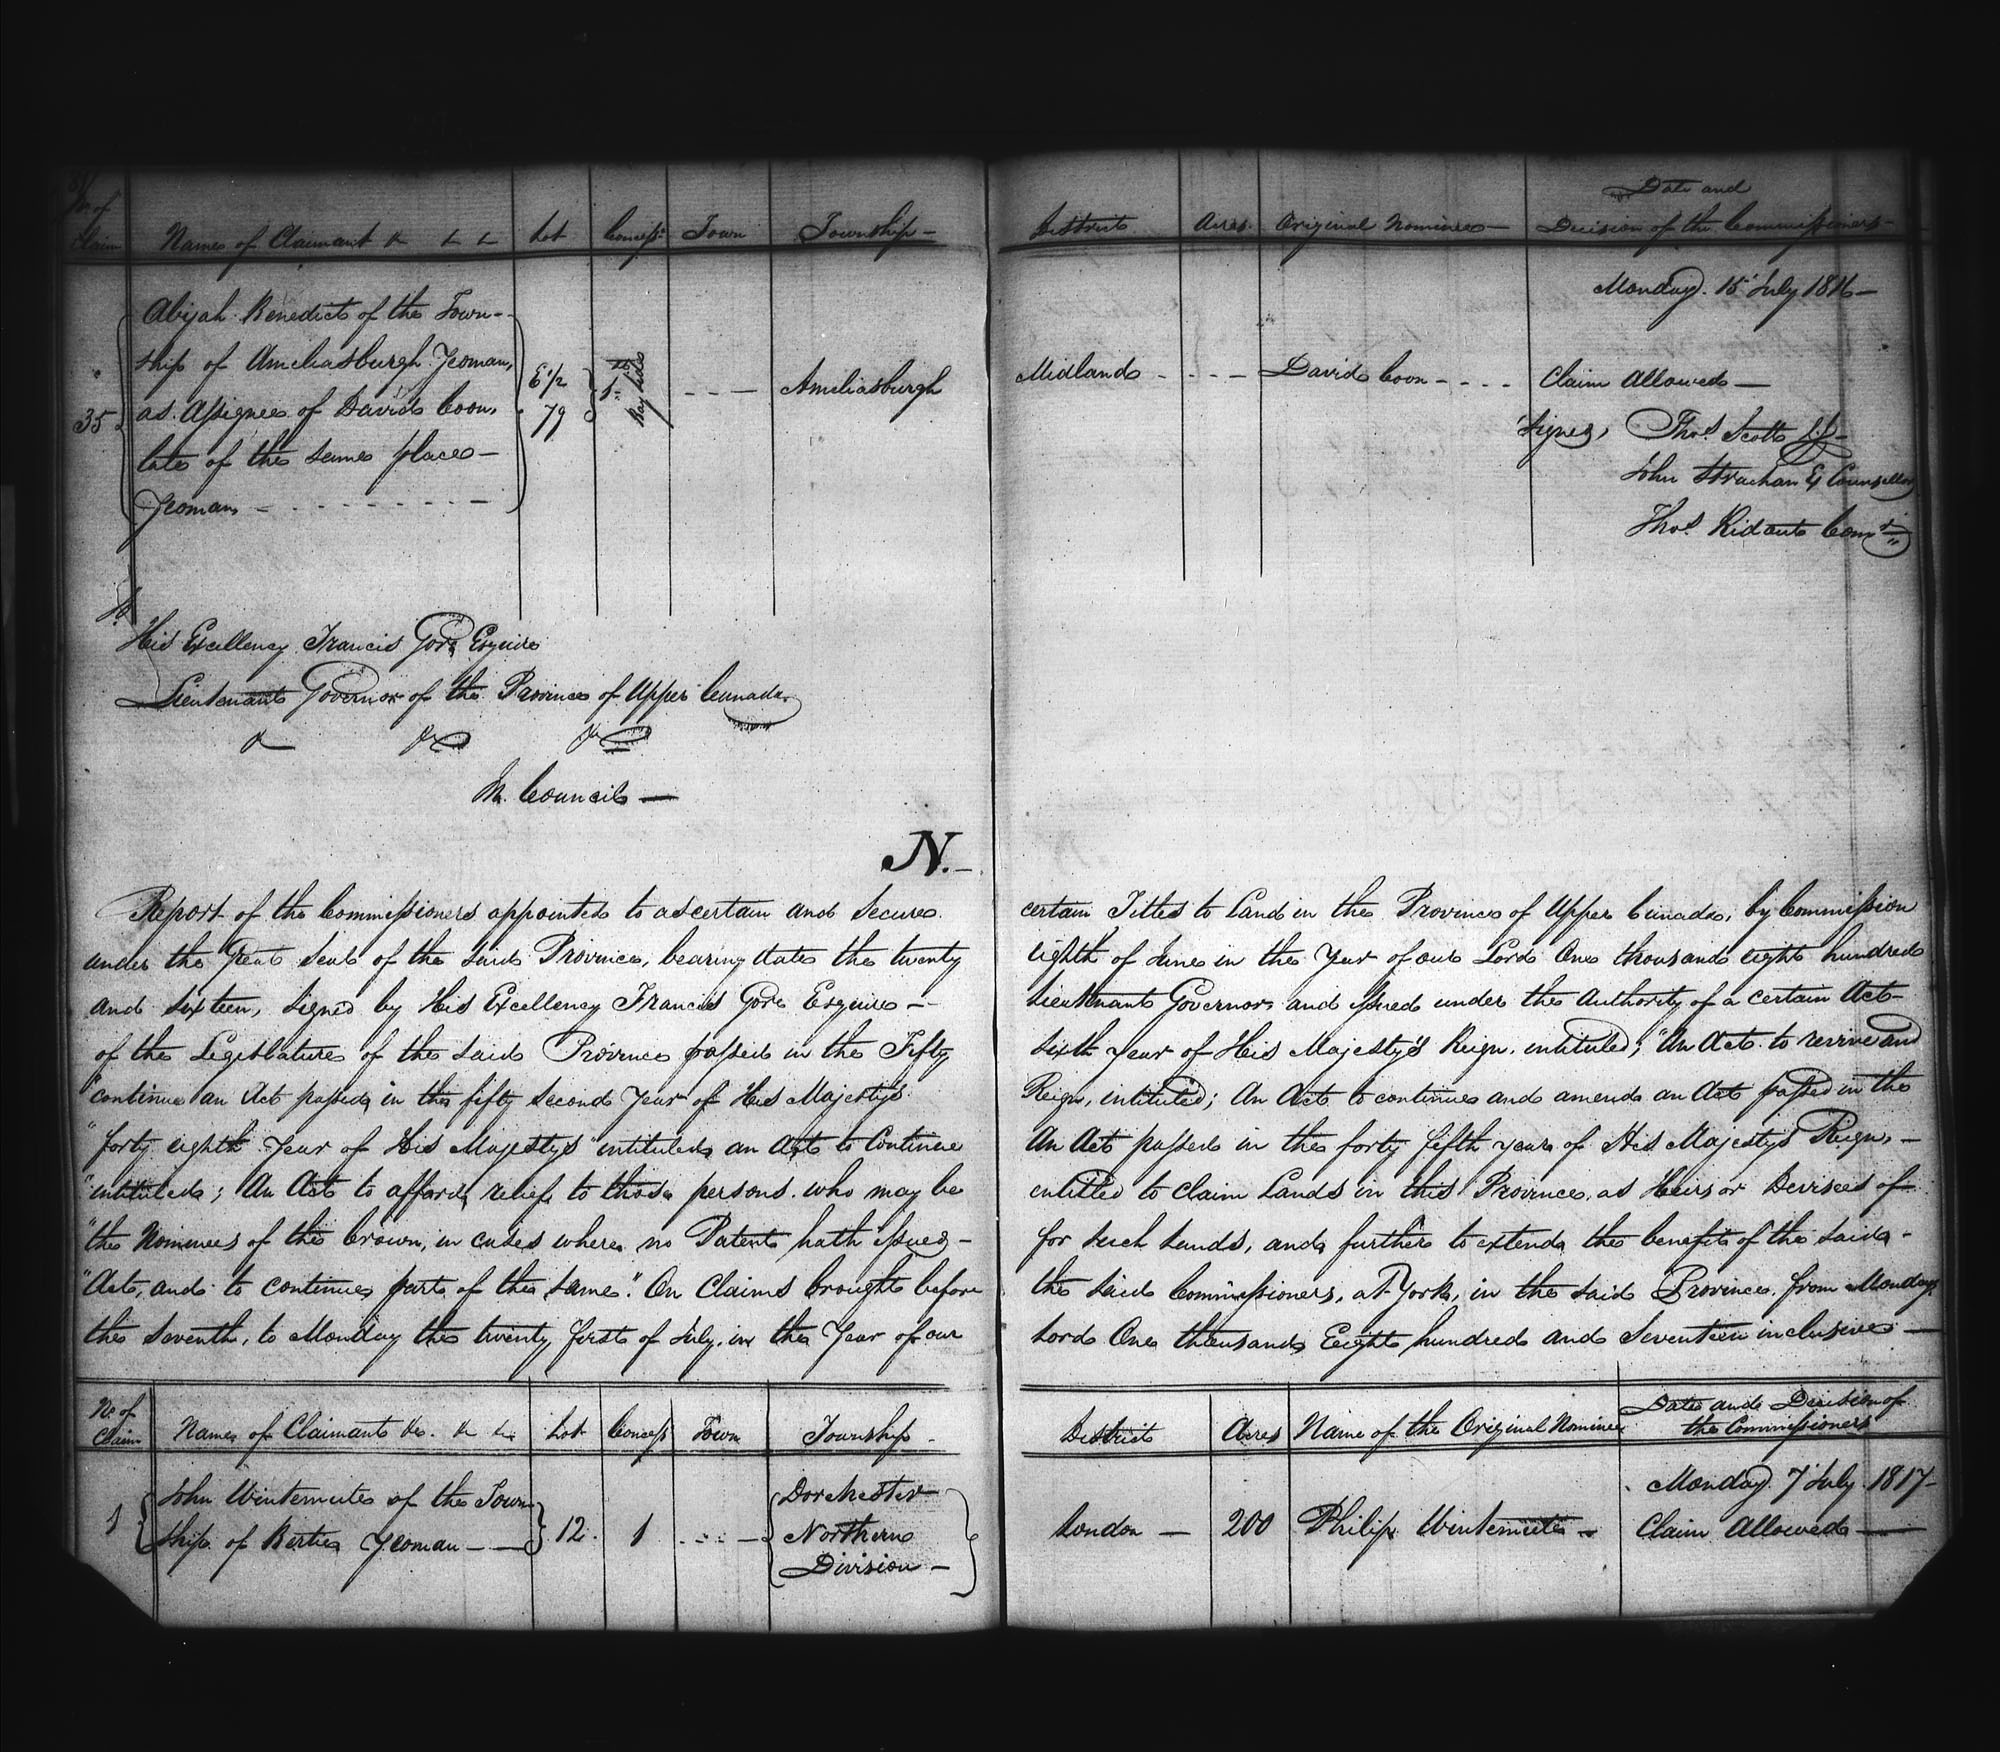 No. of Claim | Names of Claimant &c &c &c | Lot | Concess.n | Town | Township — | District | Acres | Original Nominee — | Date and Decision of the Commissioners —
Monday 15 July 1816 —
35 | Abijah Benedict of the Town-
ship of Ameliasburgh Yeoman,
as Assignee of David Coon,
late of the same place —
Yeoman — | E 1/2 79 | 1st Bay side | - - — | Ameliasburgh | Midland - - - — | David Coon - - - - | Claim Allowed —
Signed, Thos. Scott CJ —
John Strachan Ex Counsellor
Thos. Ridout Comr.
To
His Excellency Francis Gore Esquire
Lieutenant Governor of the Province of Upper Canada
&c &c &c
In Council —
N. —
Report of the Commissioners appointed to ascertain and secure certain Titles to Land in the Province of Upper Canada, by Commission
under the Great Seal of the said Province, bearing date the twenty eighth of June in the Year of our Lord One thousand eight hundred
and sixteen, signed by His Excellency Francis Gore Esquire — Lieutenant Governor, and issued under the Authority of a certain Act —
of the Legislature of the said Province passed in the Fifty sixth year of His Majesty's Reign, intituled; "An Act to revive and
"continue an Act passed, in the fifty second Year of His Majesty's Reign, intituled; An Act to continue and amend an Act passed in the
"forty eighth Year of His Majesty's "intituled, an Act to Continue An Act passed in the forty fifth year of His Majesty's Reign, —
"intituled; An Act to afford, relief to those persons who may be entitled to claim Lands in this Province, as Heirs or Devisees of
"the Nominees of the Crown, in cases where no Patent, hath issued — for such Lands, and, further to extend the benefit of the said, -
"Act, and to continue, part, of the same". On Claims brought before the said Commissioners, at York, in the said Province, from Monday
the Seventh, to Monday the twenty first of July, in the Year of our Lord One thousand Eight hundred and Seventeen inclusive —
No. of Claim | Names of Claimants &c. &c &c | Lot | Concess | Town | Township - | District | Acres | Name of the Original Nominee | Date and Decision of the Commissioners
Monday 7 July 1817 —
1 | John Wintemute of the Town
ship of Bertie Yeoman — — | 12. | 1 | - - - — | Dorchester
Northern
Division — | London — | 200 | Philip Wintemute — | Claim Allowed —